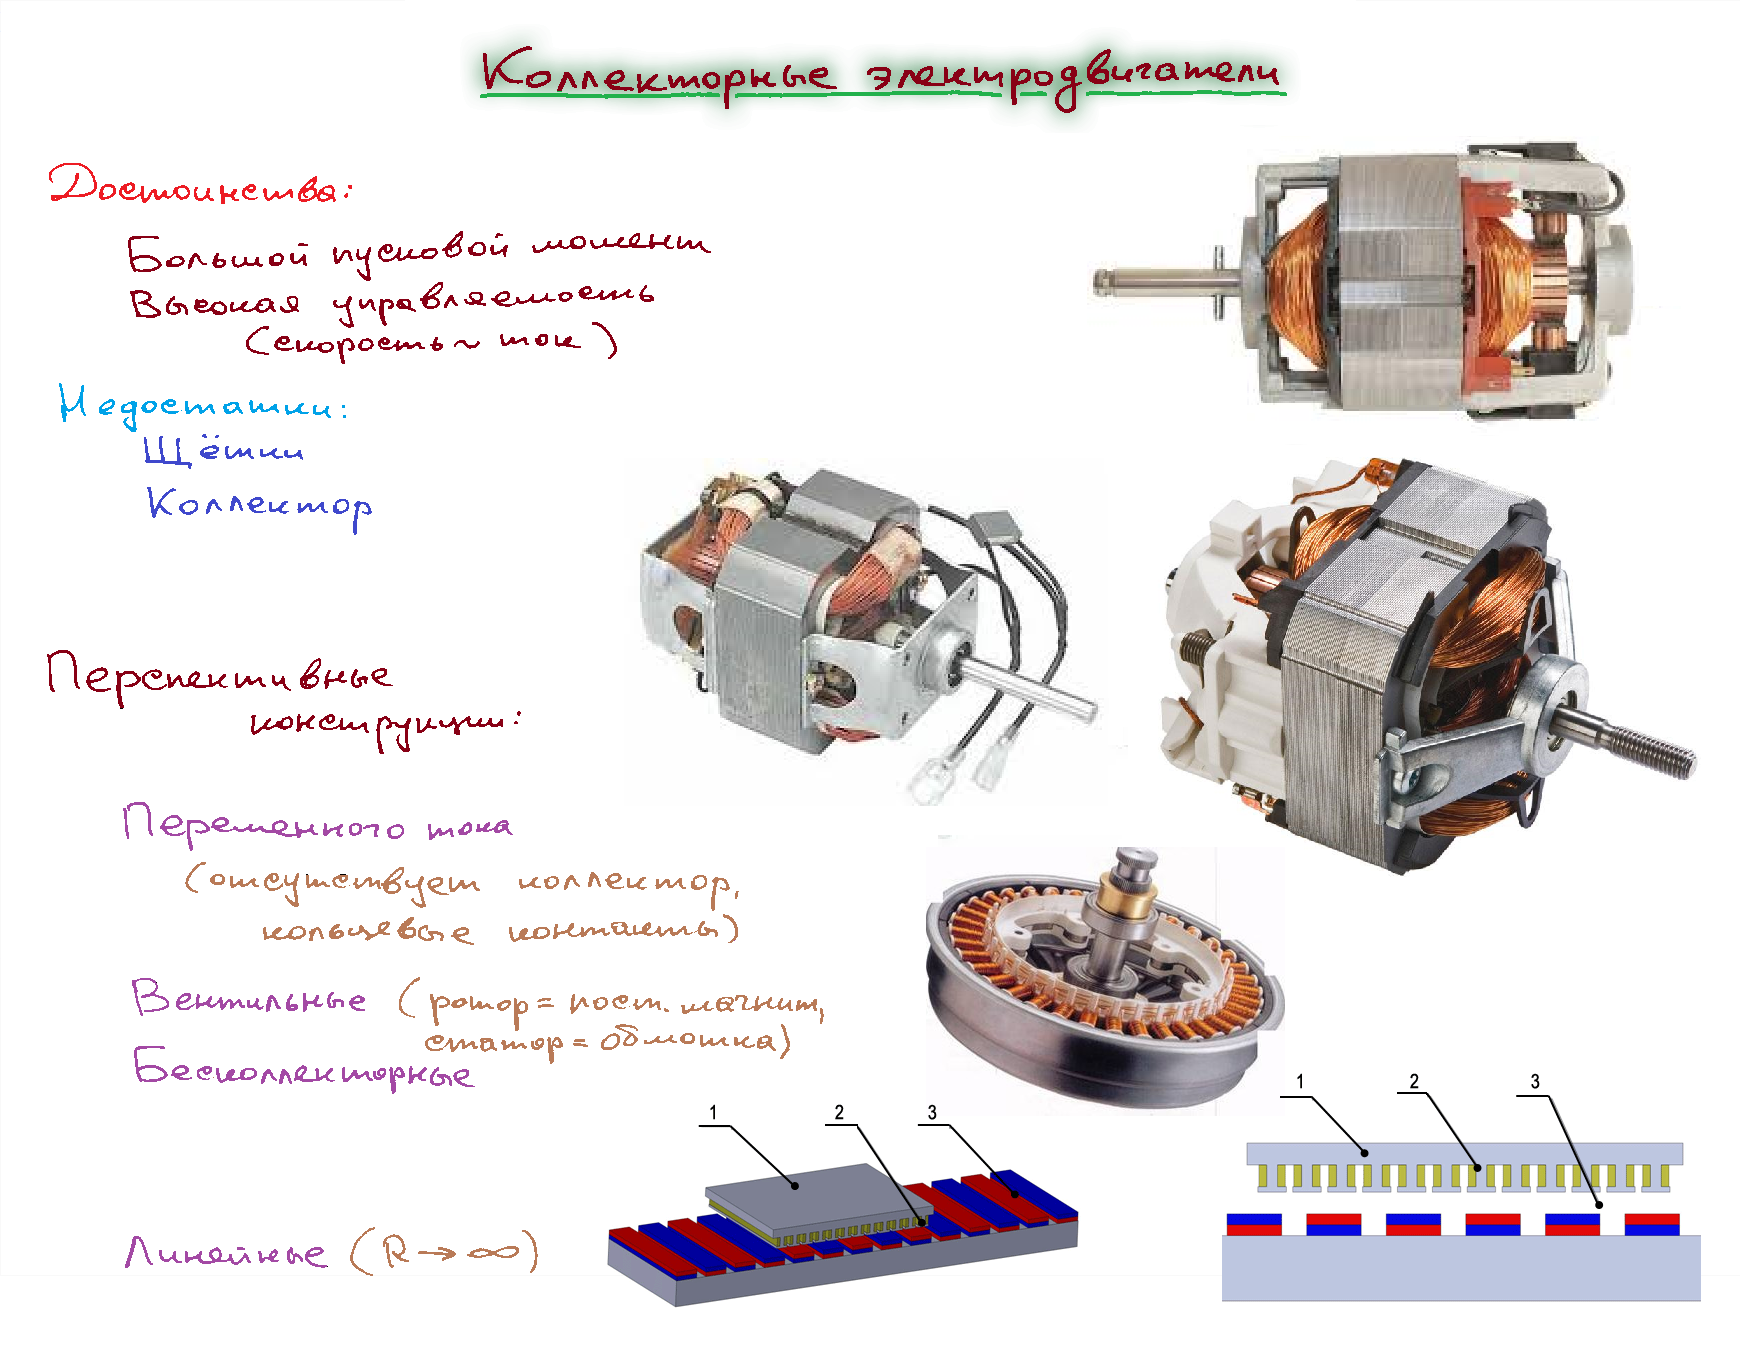 Коллекторные электродвигатели
Достоинства:
Большой пусковой момент
Высокая управляемость
(скорость ~ ток)
Недостатки:
Щётки
Коллектор
Перспективные
конструкции:
Переменного тока
(отсутствует коллектор,
кольцевые контакты)
Вентильные (ротор = пост. магнит,
статор = обмотка)
Бесколлекторные
1 2 3
1 2 3
Линейные (R → ∞)